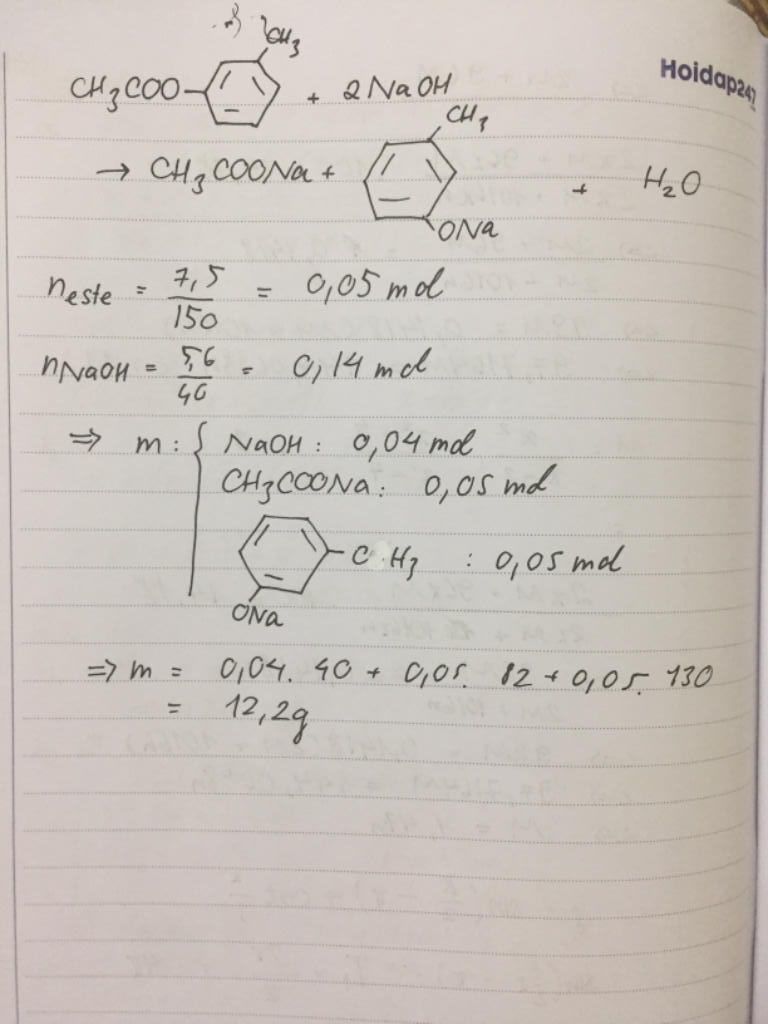 Hoidap247
CH3
CH3COO- + 2NaOH
CH3
→ CH3COONa + + H2O
ONa
neste = 7,5/150 = 0,05 mol
nNaOH = 5,6/40 = 0,14 mol
=> m : { NaOH : 0,04 mol
CH3COONa : 0,05 mol
-CH3 : 0,05 mol
ONa
=> m = 0,04. 40 + 0,05. 82 + 0,05. 130
= 12,2g